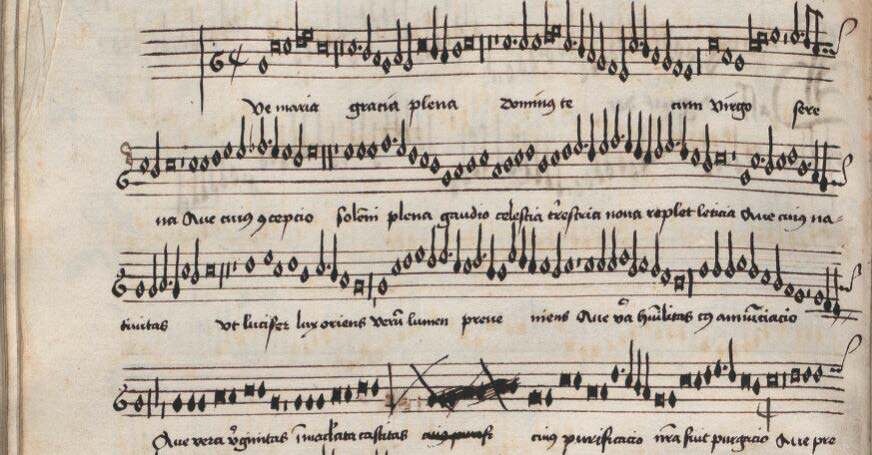 Ve maria gracia plena Dominus te cum virgo sere
na Aue cuius ꝯcepcio solēni plena gaudio celestia trestria noua replet leticia Aue cuius na-
tiuitas vt lucifer lux oriens verū lumen preue niens Aue pia hūilitas annūciacio
Aue vera virginitas īmaclata castitas cuius purificacio nr̄a fuit purgacio Aue pre